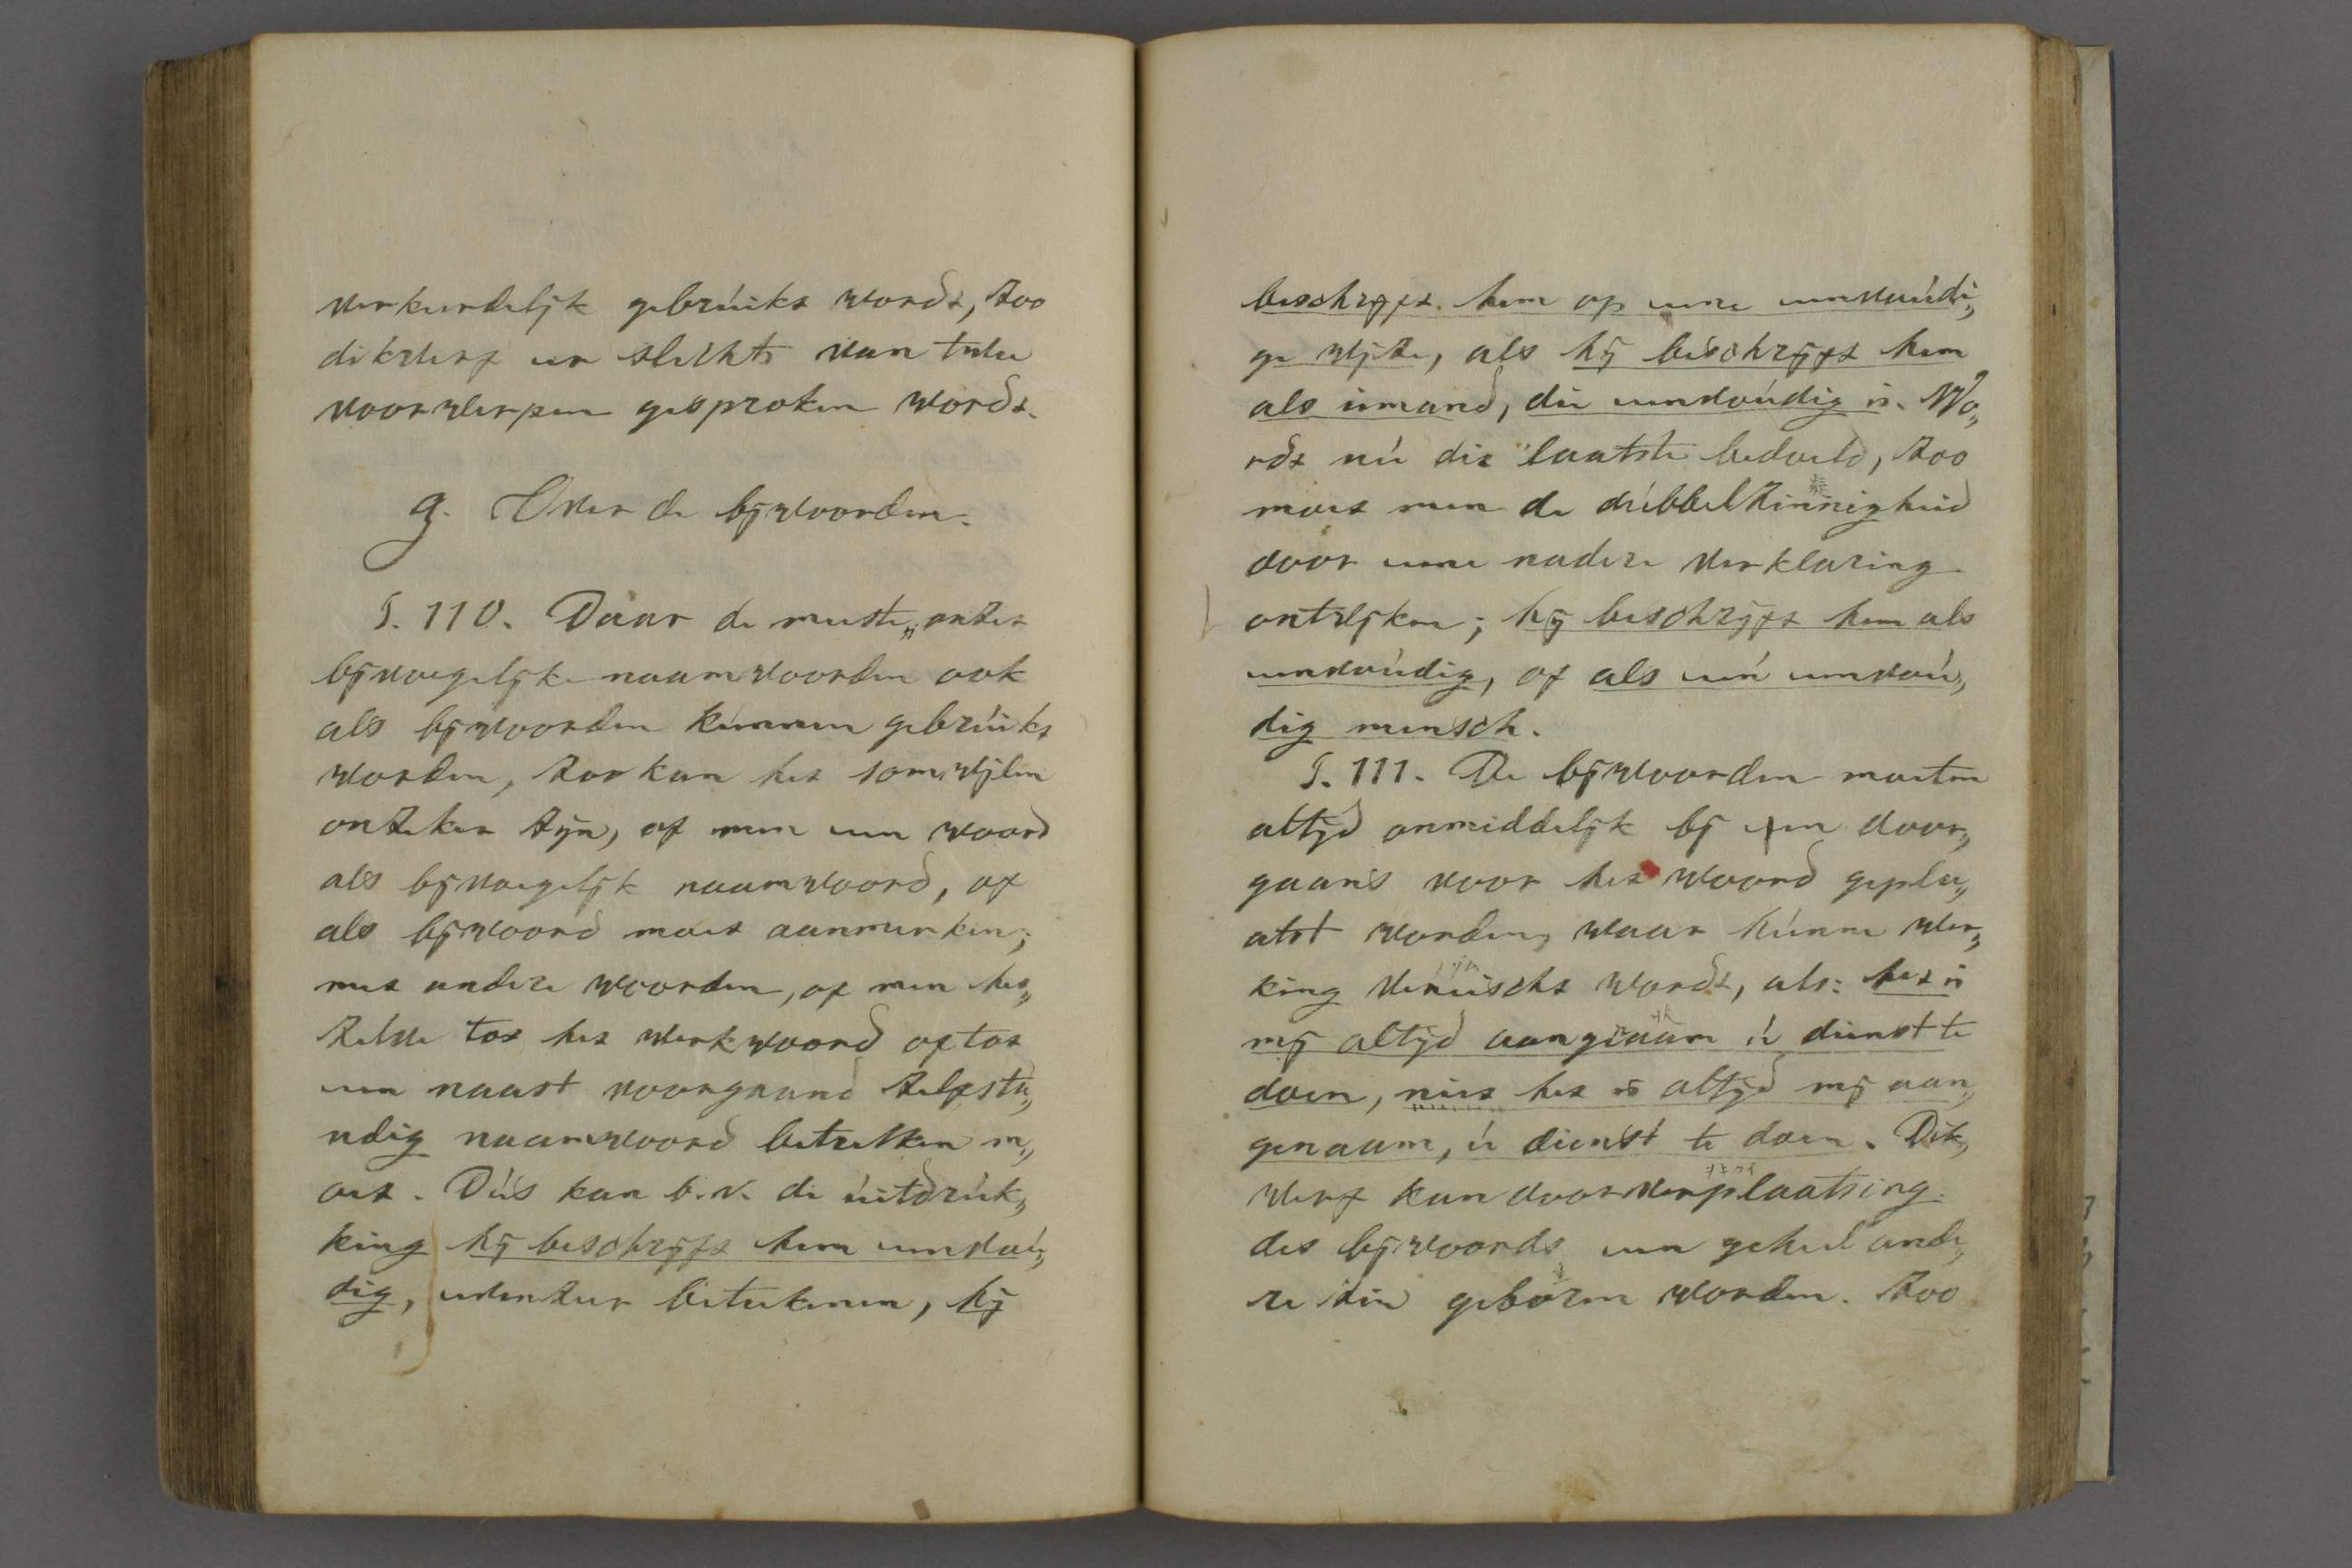 verkeerdelijk gebruikt wordt, zoo
dikwerf er slechts van twee
voorwerpen gesproken wordt.
g. Over de bijwoorden.
§. 110. Daar de meeste onzer
bijvoegelijke naamwoorden ook
als bijwoorden kunnen gebruikt
worden, zoo kan het somwijlen
onzeker zijn, of men een woord
als bijvoegelijk naamwoord, of
als bijwoord moet aanmerken;
met andere woorden, of men het„
zelve tot het werkwoord of tot
een naast voorgaand zelfsta„
ndig naamwoord betrekken m„
oet. Dus kan b.v. de uitdruk„
king hij beschrijft hem eenvou„
dig, evenzeer beteekenen, hij
beschrijft hem op eene eenvoudi„
ge wijze, als hij beschrijft hem
als iemand, die eenvoudig is. Wo„
rdt nu dit laatste bedoeld, zoo
moet men de dubbelzinnigheid
door eene nadere verklaring
ontwijken; hij beschrijft hem als
eenvoudig, of als een eenvou„
dig mensch.
§. 111. De bijwoorden moeten
altijd onmiddelijk bij en door„
gaans voor het woord gepla„
atst worden, waar hunne wer„
king vereischt wordt, als: het is
mij altijd aangenaam u dienst te
doen, niet het is altijd mij aan„
genaam, u dienst te doen. Dik„
werf kan door verplaatsing
des bijwoords een geheel ande„
re zin geboren worden. Zoo